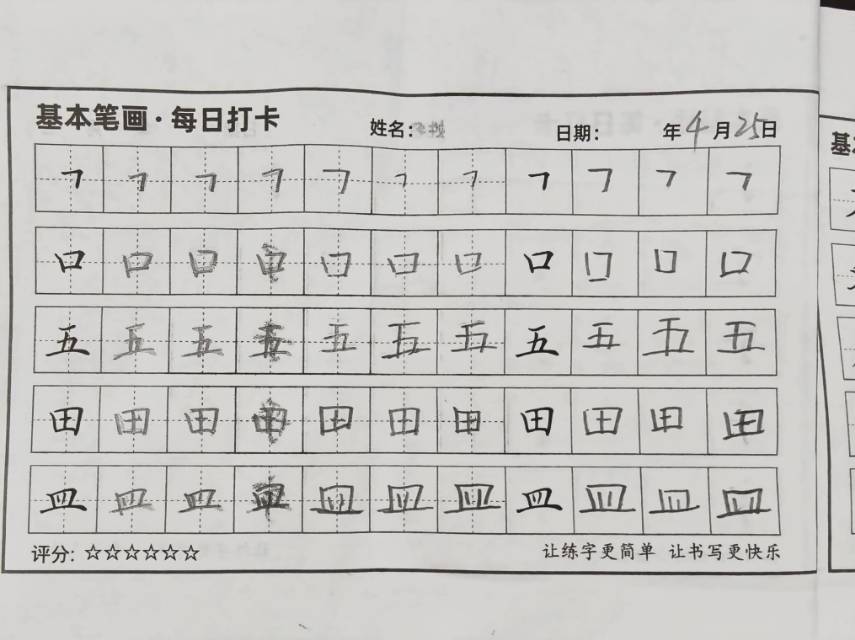 基本笔画·每日打卡
姓名: 日期: 年4月25日
㇕ ㇕ ㇕ ㇕ ㇕ ㇕ ㇕ ㇕ ㇕ ㇕ ㇕
口 口 口 口 口 口 口 口 口 口 口
五 五 五 五 五 五 五 五 五 五 五
田 田 田 田 田 田 田 田 田 田 田
皿 皿 皿 皿 皿 皿 皿 皿 皿 皿 皿
评分: ☆☆☆☆☆☆ 让练字更简单 让书写更快乐
基